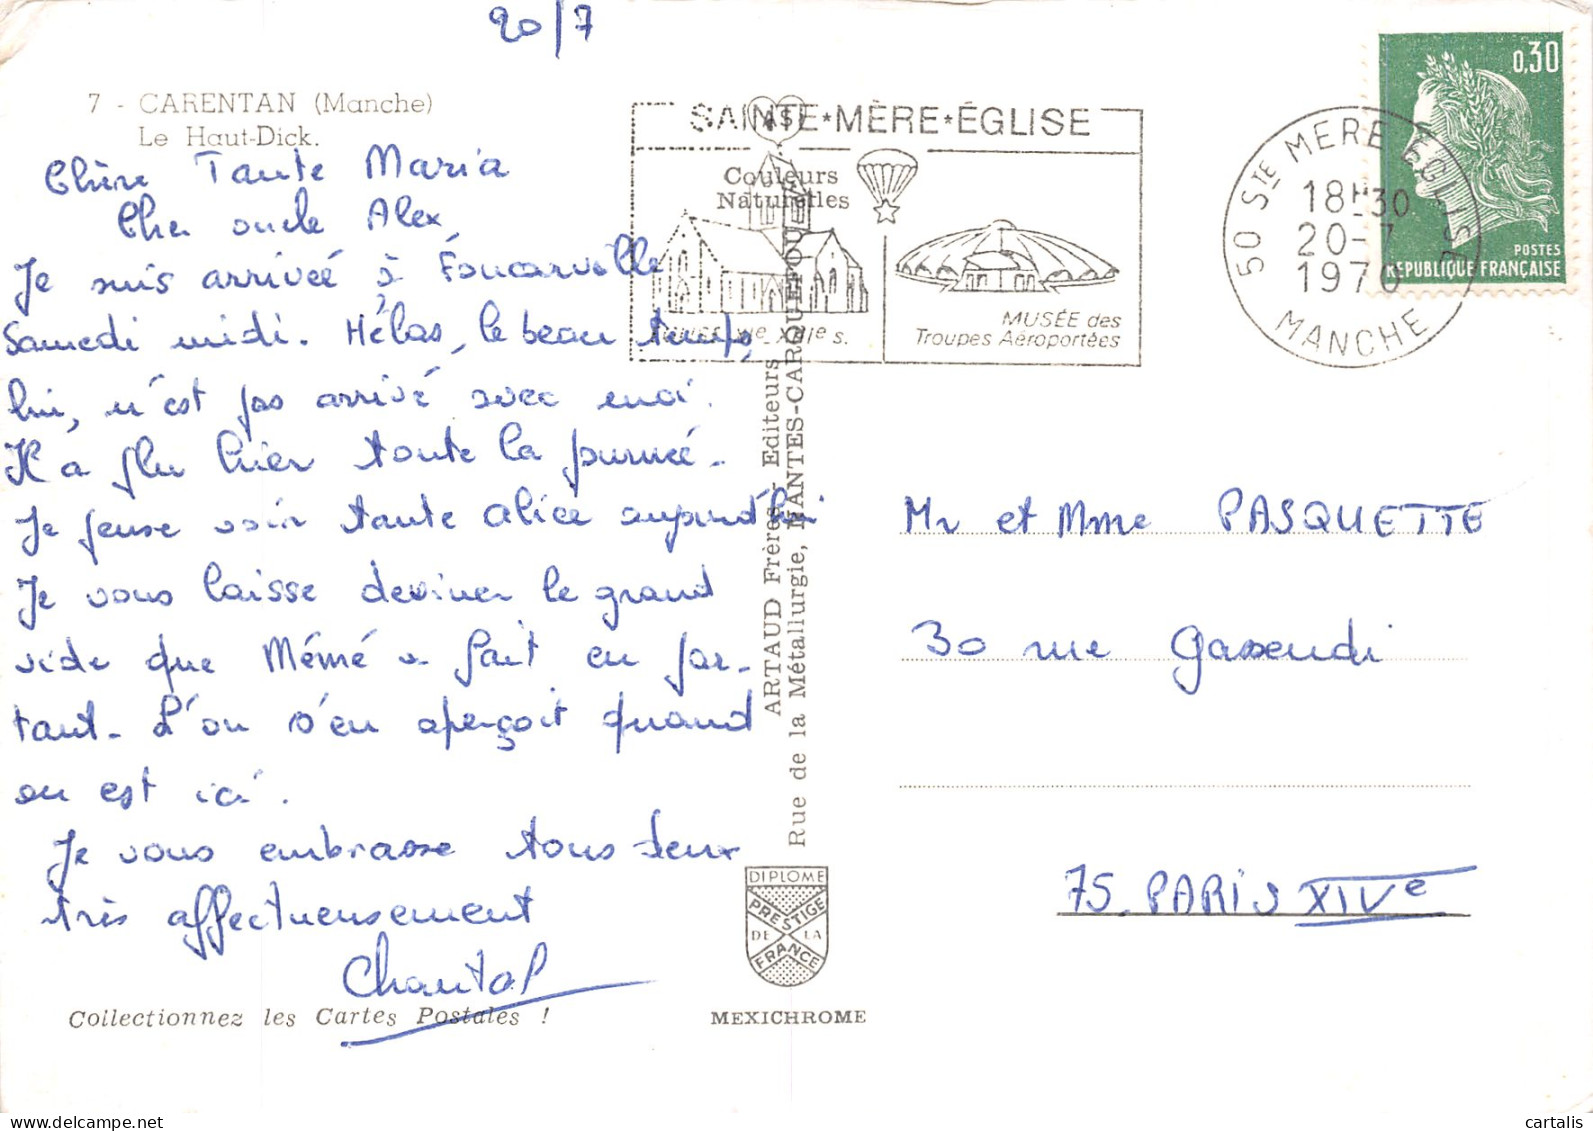 20/7
7 - CARENTAN (Manche)
Le Haut-Dick.
Chère Tante Maria
Cher oncle Alex
Je suis arrivée à Foucarville
Samedi midi. Hélas, le beau temps,
lui, n'est pas arrivé avec moi.
Il a plu hier toute la journée.
Je pense voir tante Alice aujourd'hui
Je vous laisse deviner le grand
vide que Mémé a fait en par-
tant. L'on s'en aperçoit quand
on est ici.
Je vous embrasse tous deux
très affectueusement
Chantal
Collectionnez les Cartes Postales !
SAINTE*MÈRE*ÉGLISE
Couleurs
Naturelles
XIIIe s.
MUSÉE des
Troupes Aéroportées
ARTAUD Frères - Editeurs
Rue de la Métallurgie, NANTES-CARQUEFOU
DIPLOME
PRESTIGE
DE LA
FRANCE
MEXICHROME
0,30
POSTES
RÉPUBLIQUE FRANÇAISE
50 STE MERE EGLISE
18H30
20-7
1970
MANCHE
Mr et Mme PASQUETTE
30 rue Gassendi
75. PARIS XIVe
cartalis
delcampe.net